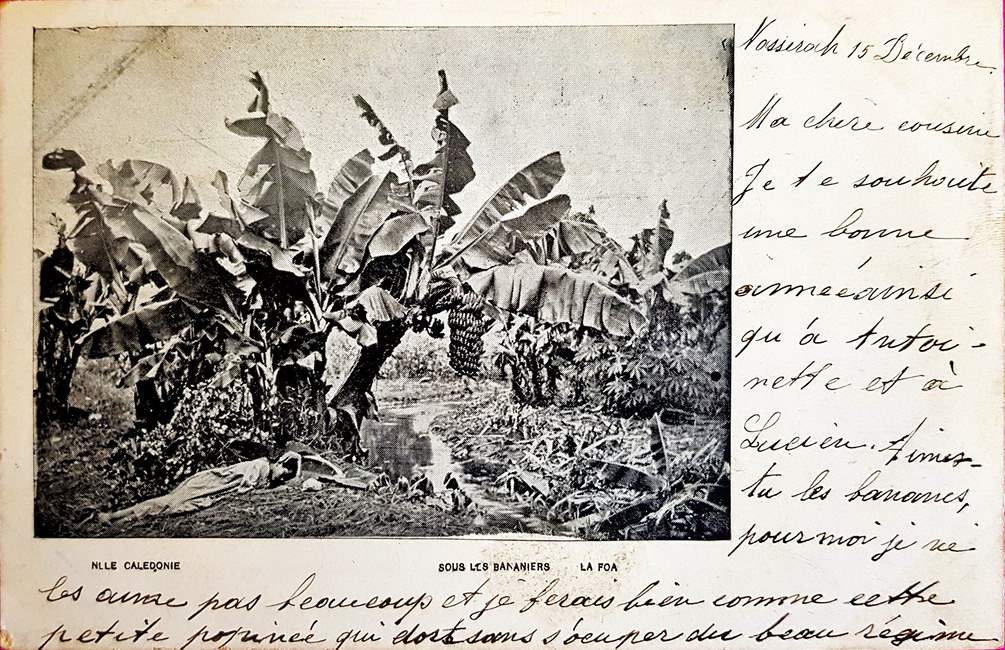 Nassirah 15 Décembre.
Ma chère cousine
Je te souhaite
une bonne
année ainsi
qu'à Antoi-
nette et à
Lucien. Aimes-
tu les bananes,
pour moi je ne
les aime pas beaucoup et je ferais bien comme cette
petite popinée qui dort sans s'ocuper du beau régime
NLLE CALEDONIE
SOUS LES BANANIERS LA FOA